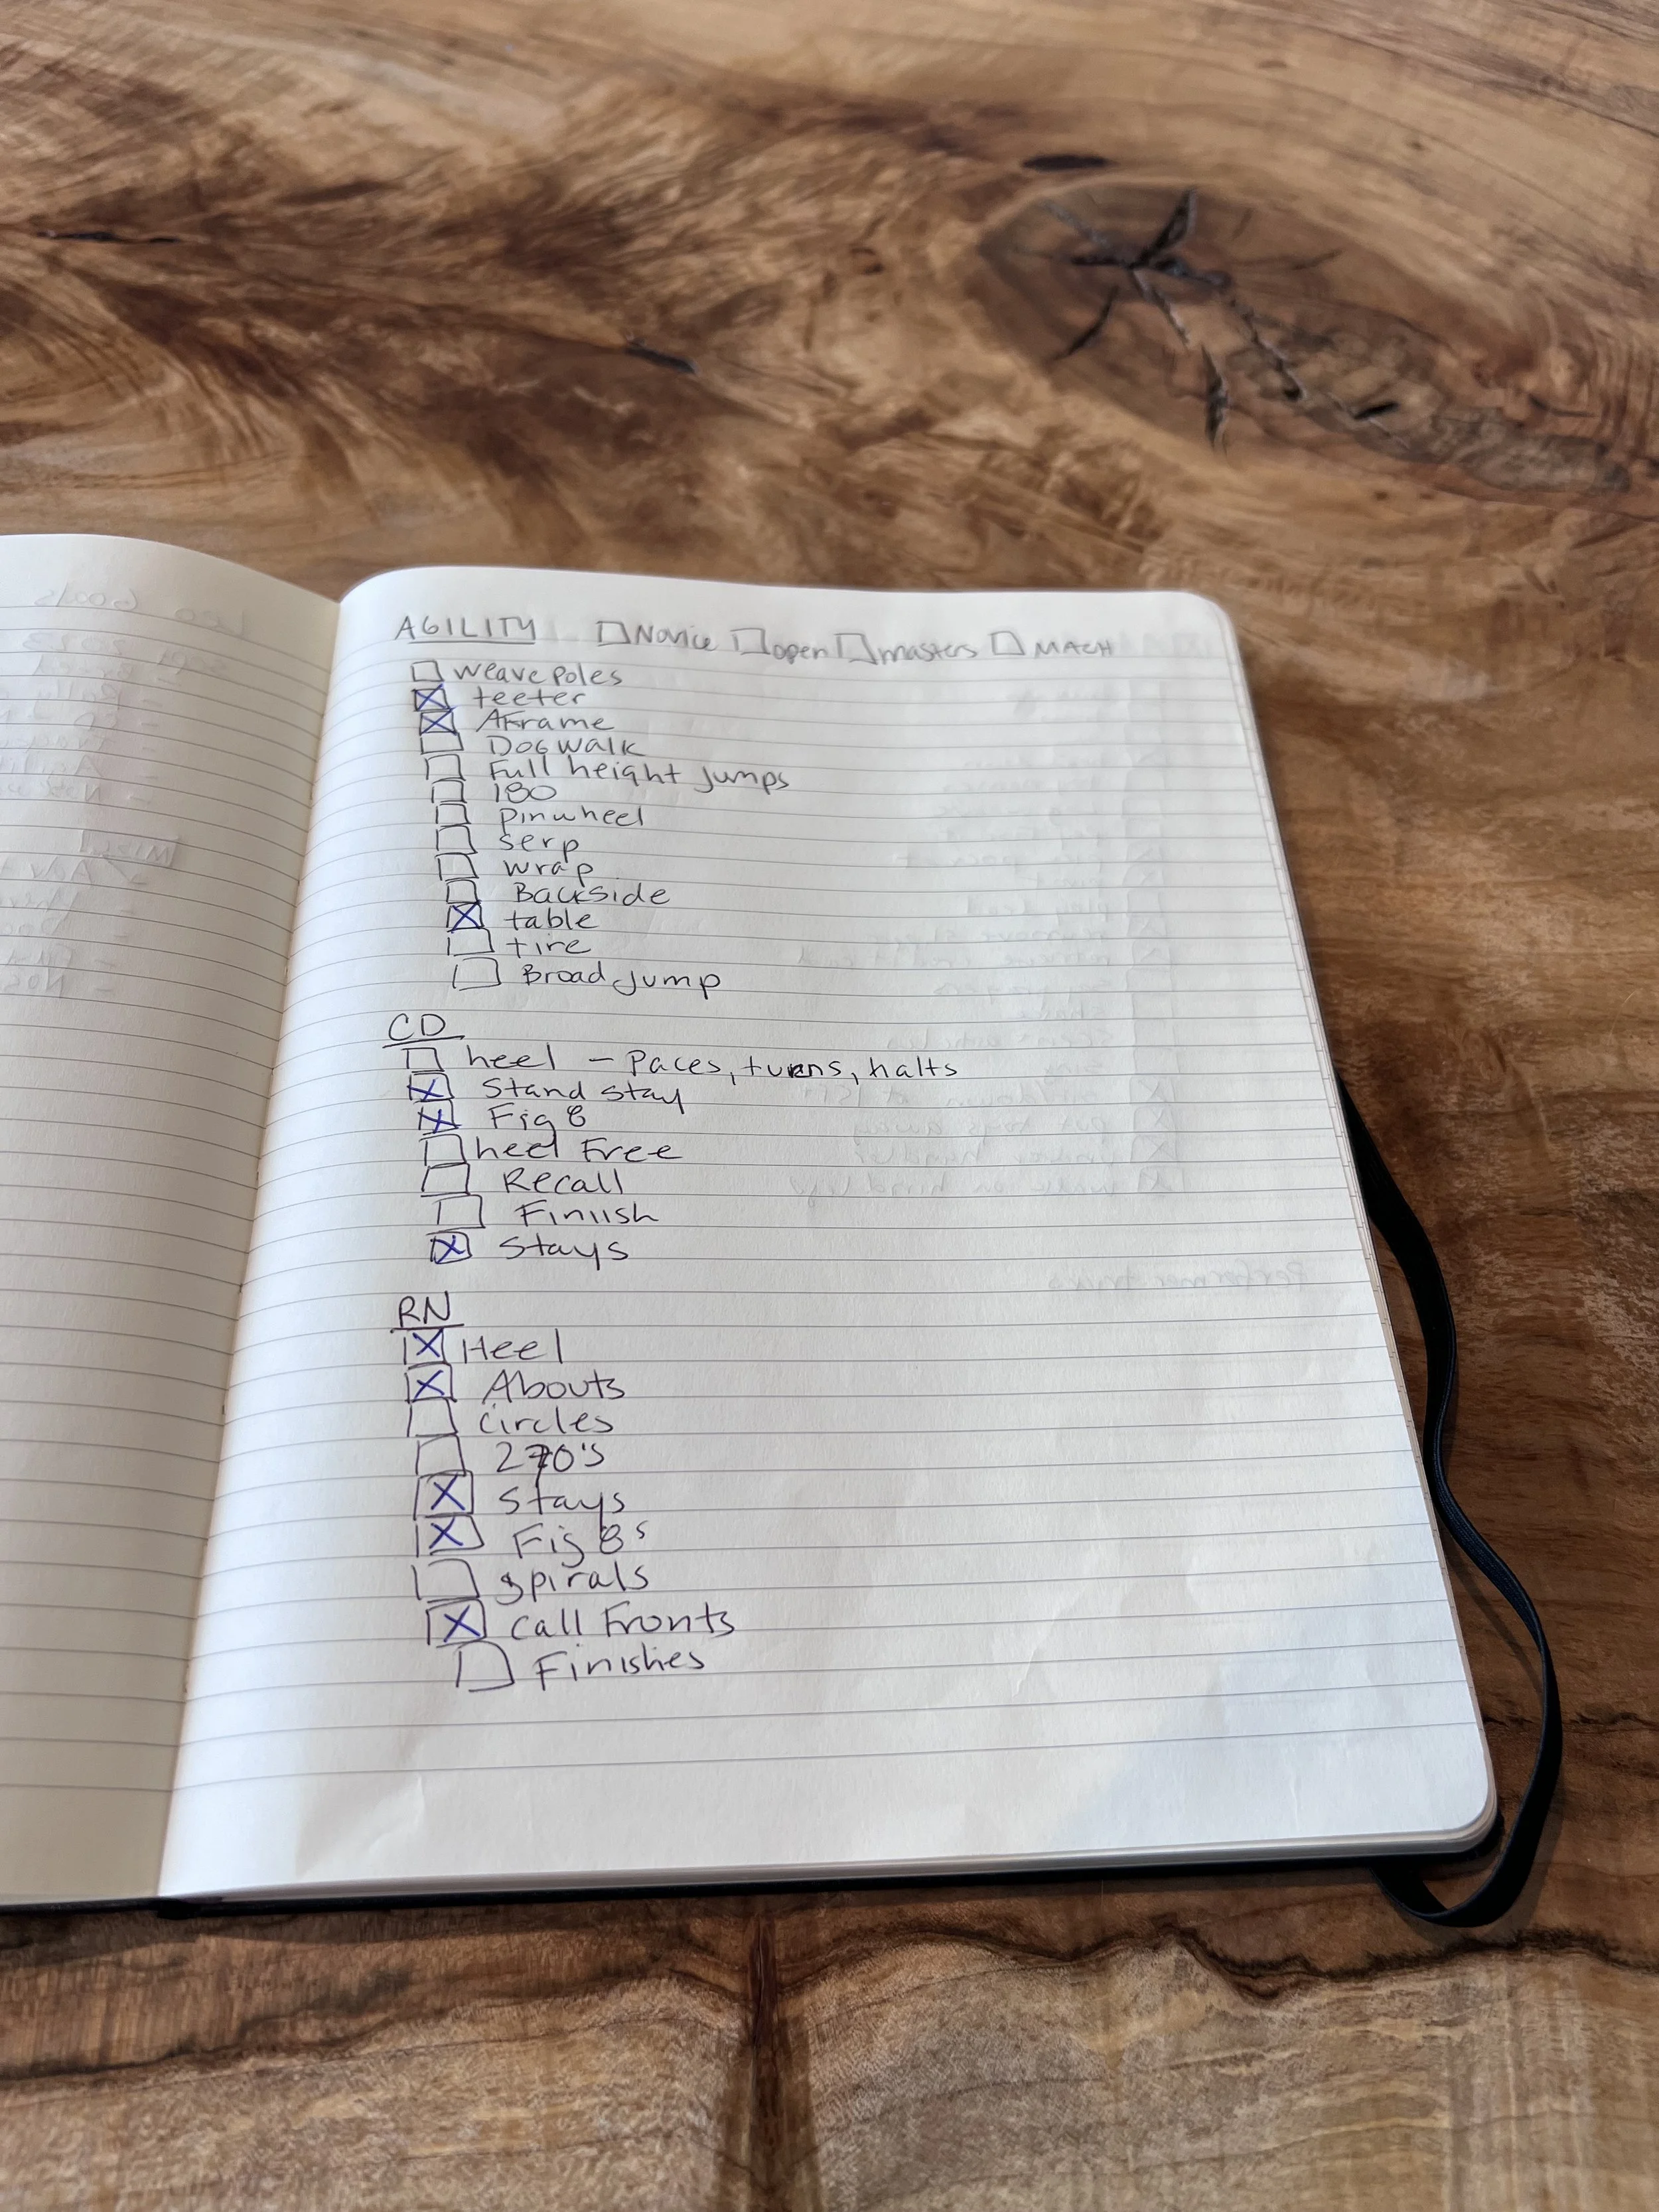 AGILITY ☐ Novice ☐ open ☐ masters ☐ MACH
☐ weave poles
☒ teeter
☒ AFrame
☐ DOG WALK
☐ Full height Jumps
☐ 180
☐ pinwheel
☐ serp
☐ wrap
☐ Backside
☒ table
☐ tire
☐ Broad Jump
CD
☐ heel - Paces, turns, halts
☒ Stand stay
☒ Fig 8
☐ heel Free
☐ Recall
☐ Finiish
☒ Stays
RN
☒ Heel
☒ Abouts
☐ circles
☐ 270's
☒ stays
☒ Fig 8s
☐ spirals
☒ call Fronts
☐ Finishes